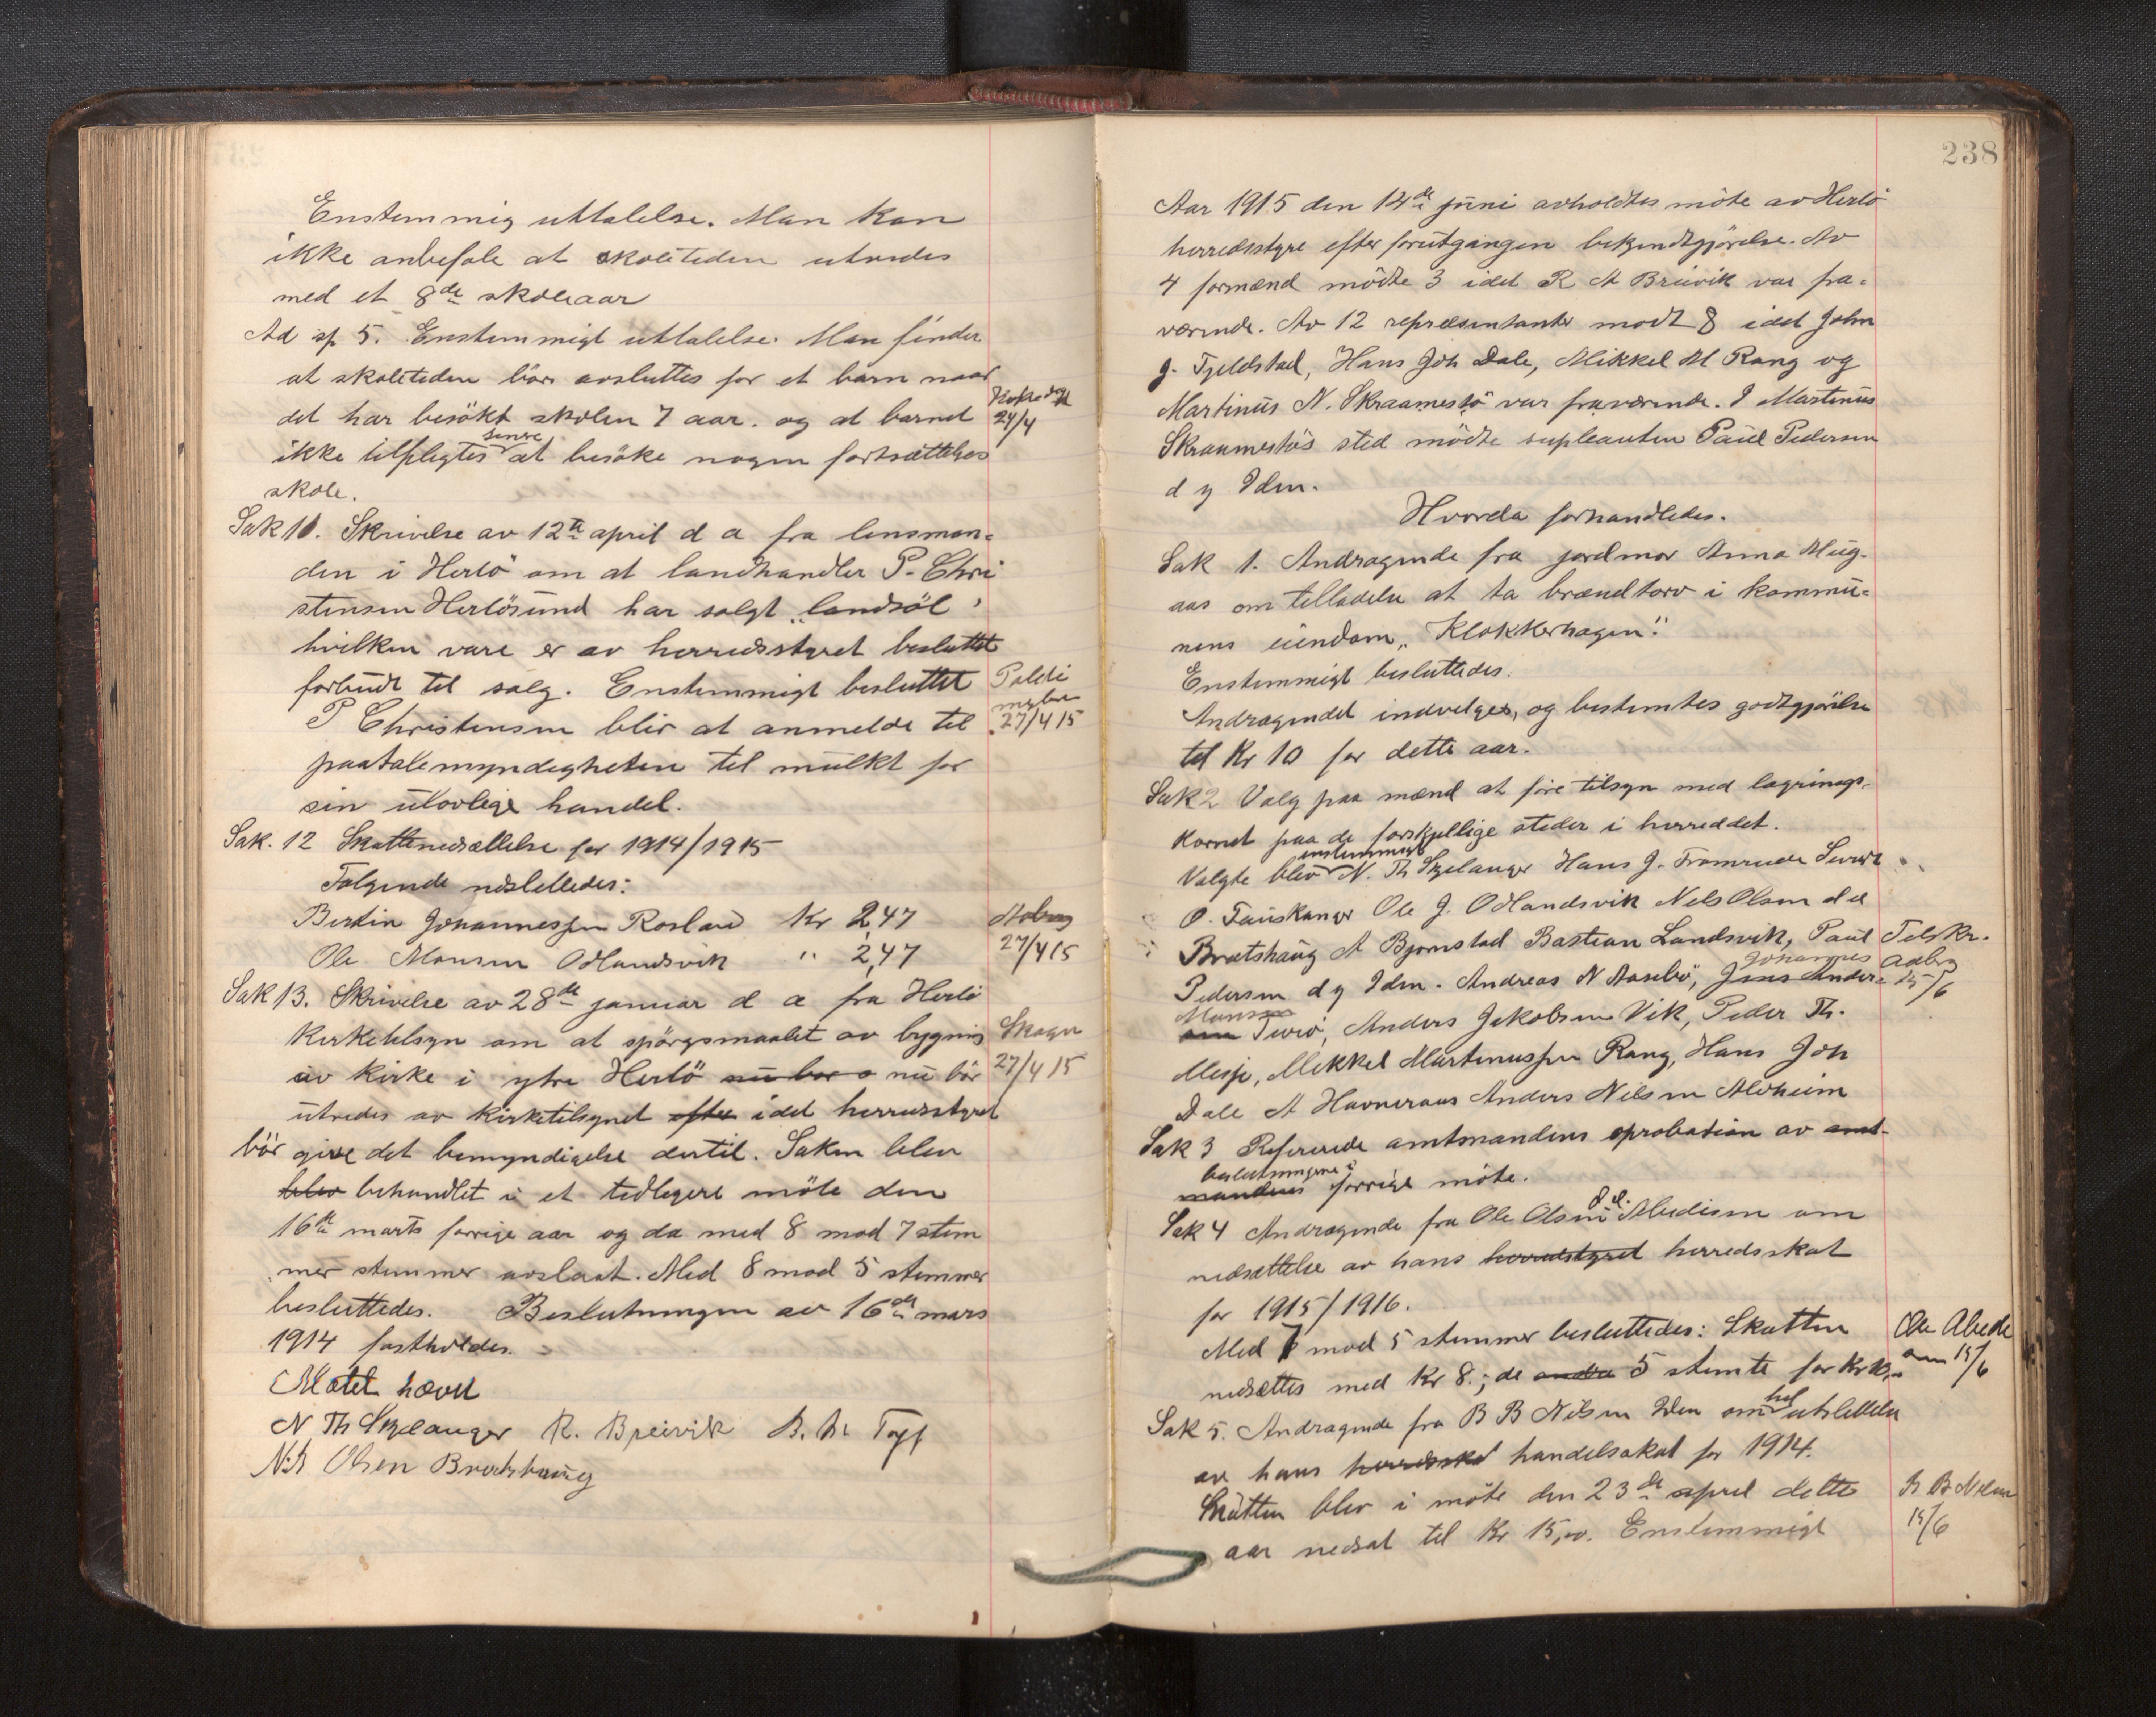 Enstemmig uttalelse. Man kan
ikke anbefale at skoletiden utvides
med et 8de skoleaar
Ad sp 5. Enstemmigt uttalelse. Man finder
at skoletiden bör avsluttes for et barn naar
det har besökt skolen 7 aar. og at barnet
24/4
ikke tilpligtes senere at besöke nogen fortsættelses
skole.
Sak 11. Skrivelse av 12te april d a fra lensman-
den i Herlö om at landhandler P. Chri
stensen Herlösund har solgt "landsöl"
hvilken vare er av herredsstyret besluttet
forbudt til salg. Enstemmigt besluttet
P Christensen blir at anmelde til
paatalemyndigheten til mulkt for
sin ulovlige handel.
Politi
mester
27/4 15
Sak. 12 Skattenedsættelse for 1914/1915
Følgende utslettedes:
Bertin Johannessen Rosland Kr 2,47
Ole Monsen Odlandsvik " 2,47
27/4 15
Sak 13. Skrivelse av 28de januar d a fra Herlö
Kirketilsyn om at spörgsmaalet av bygning
av kirke i ytre Herlö nu bör nu bör
utredes av kirketilsynet efter idet herredsstyret
bör give det bemyndigelse dertil. Saken blev
27/4 15
blev behandlet i et tidligere möte den
16de marts forrige aar og da med 8 mod 7 stem
mer stemmer avslaat. Med 8 mod 5 stemmer
besluttedes. Beslutningen av 16de mars
1914 fastholdes.
Mötet hævet
N Th Skjelanger R. Breivik
N. Olsen Bratshaug
238
Aar 1915 den 14de juni avholdtes möte av Herlö
herredsstyre efter forutgangen bekjendtgjörelse. Av
4 formænd mödte 3 idet R A Breivik var fra-
værende. Av 12 repræsentanter mödt 8 idet John
J. Fjeldstad, Hans Joh Dale, Mikkel M Rong og
Martinus N. Skraamestö var fraværende. I Martinus
Skraamestös sted mödte supleanten Paul Pedersen
d y Iden.
Hvorda forhandledes.
Sak 1. Andragende fra jordmor Anna Mug-
aas om tilladelse at ta brændtorv i kommu-
nens eiendom "Klokkerhagen".
Enstemmigt besluttedes.
Andragendet indvelges, og bestemtes godtgjörelse
til Kr 10 for dette aar.
Sak 2 Valg paa mænd at före tilsyn med lagrings-
kornet paa de forskjellige steder i herreddet.
Valgte blev enstemmigt N. Th Skjelanger Hans J. Fromreide Sivert
O. Tauskanger Ole J. Odlandsvik Nels Olsen d e
Bratshaug A Bjornstad Bastian Landsvik, Paul
Pedersen d y Iden. Andreas N Aasebö, Jens Anders- Johannes
en Monsen Turö, Anders Jakobsen Vik, Peder Th.
15/6
Misje, Mikkel Martinussen Rong, Hans Joh
Dale A Havneraas Anders Nilsen Alvheim
Sak 3 Refererede amtmandens aprobation av amt-
mandens beslutningene i forrige möte.
Sak 4 Andragende fra Ole Olsen d e. Abedisen om
nedsættelse av hans herredstyret herredsskat
for 1915/1916.
Med 7 mod 5 stemmer besluttedes: Skatten
nedsættes med Kr 8.; de andre 5 stemte for Kr
Ole Abede
15/6
Sak 5. Andragende fra B B Nilsen Iden om hel utslettelse
av hans herredsskat handelsskat for 1914.
Skatten blev i möte den 23de april dette
aar nedsat til Kr 15,00. Enstemmigt
B B Nilsen
15/6